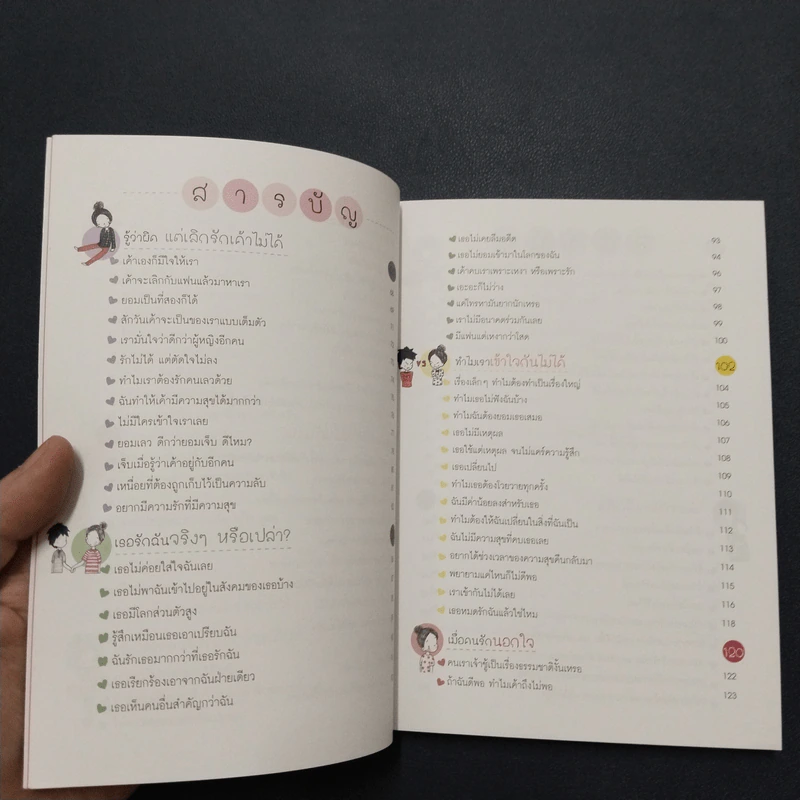 สารบัญ
รู้ว่าผิด แต่เลิกรักเค้าไม่ได้
เค้าเองก็มีใจให้เรา
เค้าจะเลิกกับแฟนแล้วมาหาเรา
ยอมเป็นที่สองก็ได้
สักวันเค้าจะเป็นของเราแบบเต็มตัว
เรามั่นใจว่าดีกว่าผู้หญิงอีกคน
รักไม่ได้ แต่ตัดใจไม่ลง
ทำไมเราต้องรักคนเลวด้วย
ฉันทำให้เค้ามีความสุขได้มากกว่า
ไม่มีใครเข้าใจเราเลย
ยอมเลว ดีกว่ายอมเจ็บ ดีไหม?
เจ็บเมื่อรู้ว่าเค้าอยู่กับอีกคน
เหนื่อยที่ต้องถูกเก็บไว้เป็นความลับ
อยากมีความรักที่มีความสุข
เธอรักฉันจริงๆ หรือเปล่า?
เธอไม่ค่อยใส่ใจฉันเลย
เธอไม่พาฉันเข้าไปอยู่ในสังคมของเธอบ้าง
เธอมีโลกส่วนตัวสูง
รู้สึกเหมือนเธอเอาเปรียบฉัน
ฉันรักเธอมากกว่าที่เธอรักฉัน
เธอเรียกร้องเอาจากฉันฝ่ายเดียว
เธอเห็นคนอื่นสำคัญกว่าฉัน
เธอไม่เคยลืมอดีต 93
เธอไม่ยอมเข้ามาในโลกของฉัน 94
เค้าคบเราเพราะเหงา หรือเพราะรัก 96
เอะอะก็ไม่ว่าง 97
แค่โทรหามันยากนักเหรอ 98
เราไม่มีอนาคตร่วมกันเลย 99
มีแฟนแต่เหงากว่าโสด 100
VS ทำไมเราเข้าใจกันไม่ได้ 102
เรื่องเล็กๆ ทำไมต้องทำเป็นเรื่องใหญ่ 104
ทำไมเธอไม่ฟังฉันบ้าง 105
ทำไมฉันต้องยอมเธอเสมอ 106
เธอไม่มีเหตุผล 107
เธอใช้แต่เหตุผล จนไม่แคร์ความรู้สึก 108
เธอเปลี่ยนไป 109
ทำไมเธอต้องโวยวายทุกครั้ง 110
ฉันมีค่าน้อยลงสำหรับเธอ 111
ทำไมต้องให้ฉันเปลี่ยนในสิ่งที่ฉันเป็น 112
ฉันไม่มีความสุขที่คบเธอเลย 113
อยากได้ช่วงเวลาของความสุขคืนกลับมา 114
พยายามแค่ไหนก็ไม่ดีพอ 115
เราเข้ากันไม่ได้เลย 116
เธอหมดรักฉันแล้วใช่ไหม 118
เมื่อคนรักนอกใจ 120
คนเราเจ้าชู้เป็นเรื่องธรรมชาติงั้นเหรอ 122
ถ้าฉันดีพอ ทำไมเค้าถึงไม่พอ 123